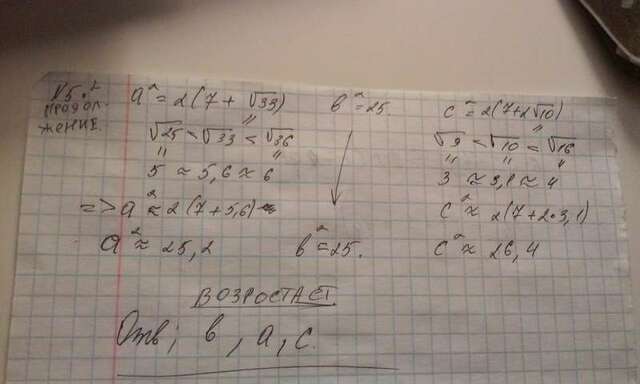 №5.
продол-
жение.
a² = 2(7 + √33)    b² = 25.    c² = 2(7+2√10)
√25 = √33 < √36    √9 = √10 = √16
5 ≈ 5,6 ≈ 6    3 ≈ 3,1 ≈ 4
=> a² ≈ 2(7+5,6)    c² ≈ 2(7+2·3,1)
a² ≈ 25,2    b² = 25.    c² ≈ 26,4
ВОЗРОСТАЕТ
Отв; b, a, c.